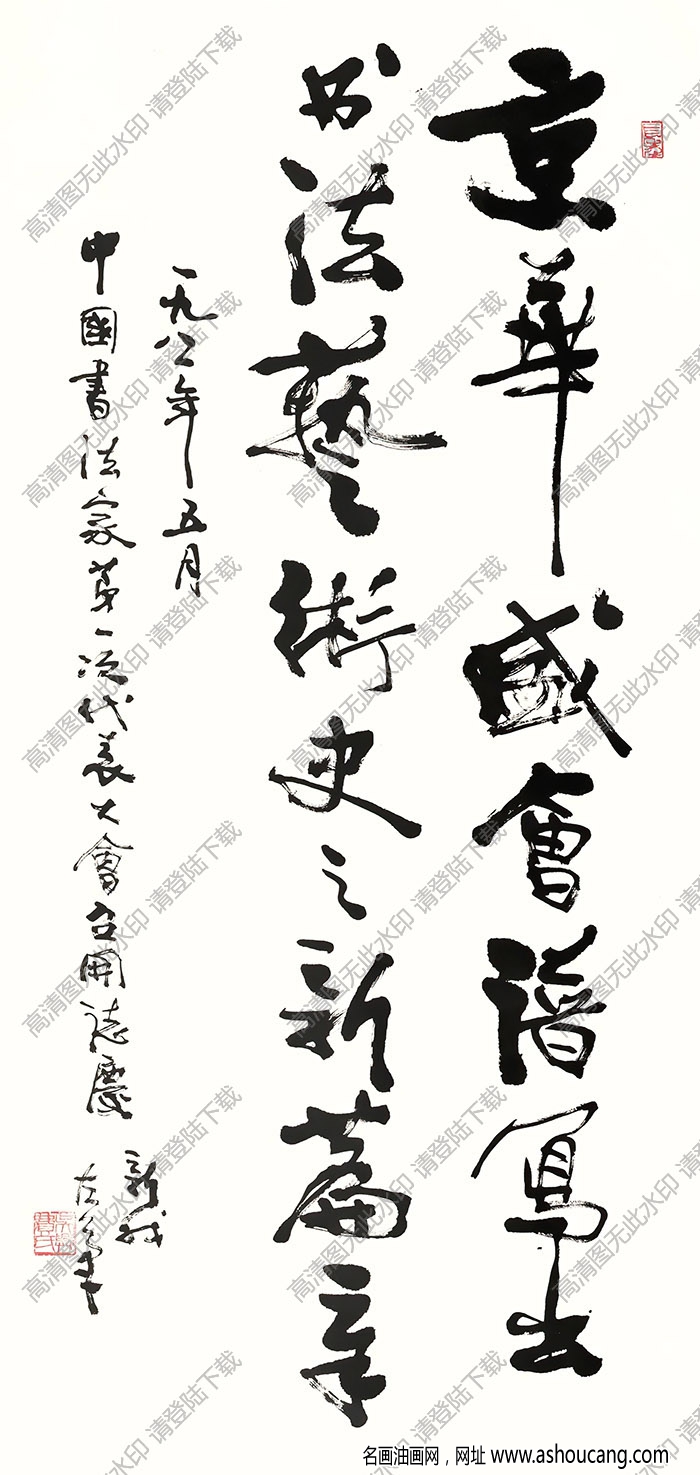 京華盛會譜寫出
书法藝術史之新篇章
一九八一年五月
中國書法家第一次代表大會召開誌慶
新我
左筆
高清图无此水印 请登陆下载
名画油画网，网址 www.ashoucang.com